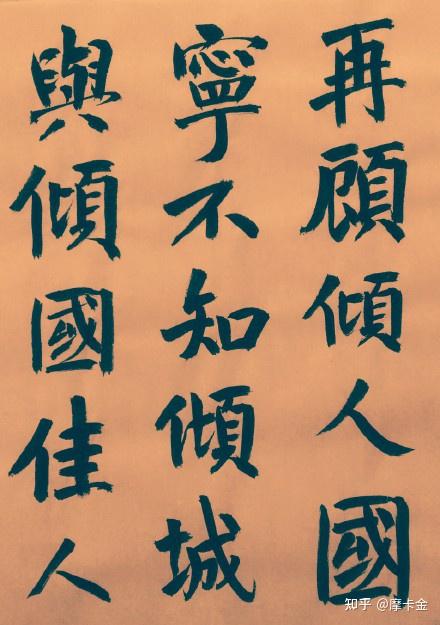 再顧傾人國
寧不知傾城
與傾國佳人
知乎 @摩卡金